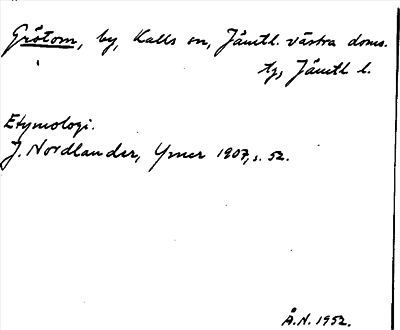 Gråtom, by, Kalls sn, Jämtl. västra doms.
tg, Jämtl l.
Etymologi.
J. Nordlander, Ymer 1907, s. 52.
Å.N. 1952.